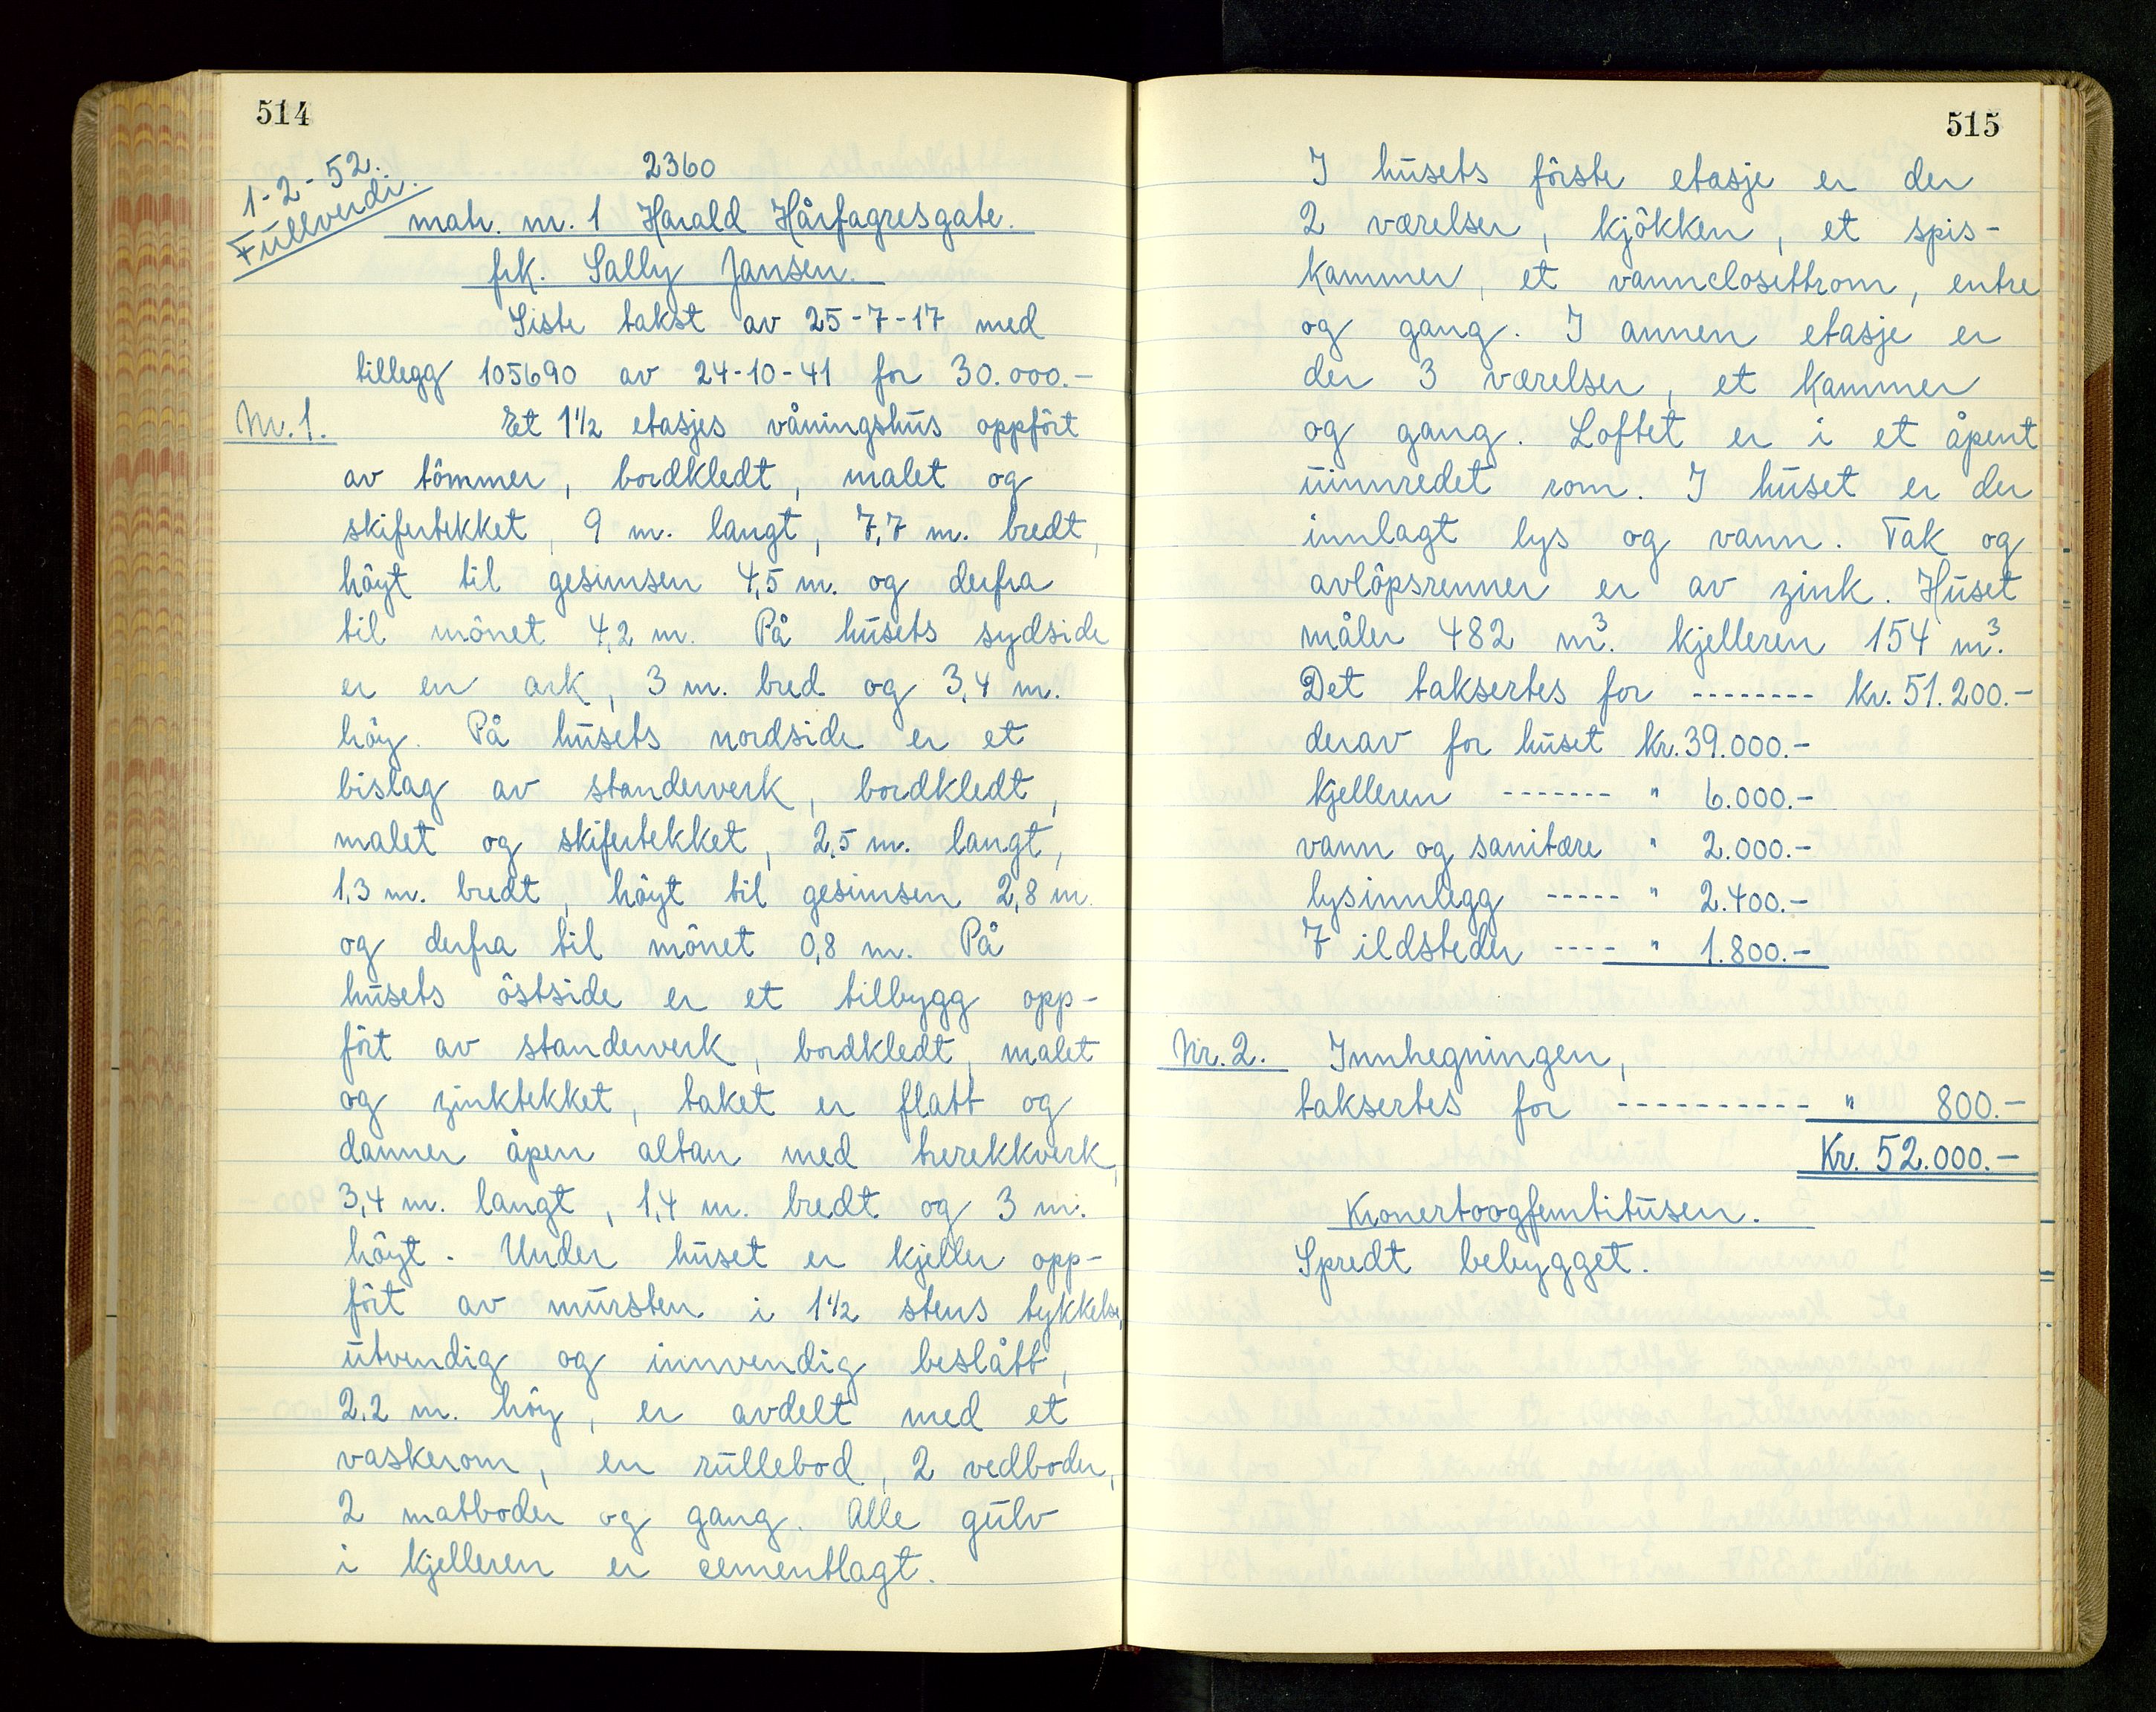 514
1-2-52.
Fullverdi.
2360
matr. nr. 1 Harald Hårfagresgate.
frk. Sally Jansen.
Siste takst av 25-7-17 med
tillegg 105690 av 24-10-41 for 30.000.-
Nr. 1. Et 1½ etasjes våningshus oppfört
av tömmer, bordkledt, malet og
skifertekket, 9 m. langt, 7,7 m. bredt,
höyt til gesimsen 4,5 m. og derfra
til mönet 4,2 m. På husets sydside
er en ark, 3 m. bred og 3,4 m.
höy. På husets nordside er et
bislag av standerverk, bordkledt,
malet og skifertekket, 2,5 m. langt,
1,3 m. bredt, höyt til gesimsen 2,8 m.
og derfra til mönet 0,8 m. På
husets östside er et tilbygg opp-
fört av standerverk, bordkledt, malet
og zinktekket, taket er flatt og
danner åpen altan med trerekkverk,
3,4 m. langt, 1,4 m. bredt og 3 m.
höyt. Under huset er kjeller opp-
fört av mursten i 1½ stens tykkelse,
utvendig og innvendig beslått,
2,2 m. höy, er avdelt med et
vaskerom, en rullebod, 2 vedboder,
2 matboder og gang. Alle gulv
i kjelleren er cementlagt.
515
I husets förste etasje er der
2 værelser, kjökken, et spis-
kammer, et vannclosettrom, entre
og gang. I annen etasje er
der 3 værelser, et kammer
og gang. Loftet er i et åpent
uinnredet rom. I huset er der
innlagt lys og vann. Tak og
avlöpsrenner er av zink. Huset
måler 482 m³. kjelleren 154 m³.
Det taksertes for -------- kr. 51.200.-
derav for huset kr. 39.000.-
kjelleren ------- " 6.000.-
vann og sanitære " 2.000.-
lysinnlegg ----- " 2.400.-
7 ildsteder ---- " 1.800.-
Nr. 2. Innhegningen,
taksertes for ---------- " 800.-
Kr. 52.000.-
Kronertoogfemtitusen.
Spredt bebygget.